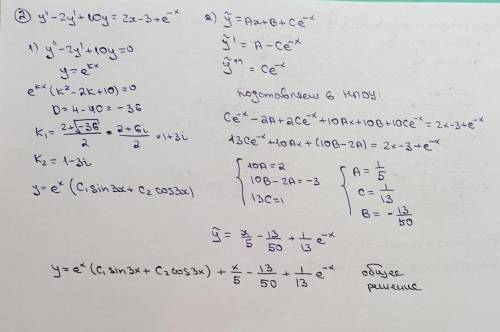 ② y'' - 2y' + 10y = 2x - 3 + e^{-x}
1) y'' - 2y' + 10y = 0
y = e^{kx}
e^{kx}(k² - 2k + 10) = 0
D = 4 - 40 = -36
k₁ = \frac{2+\sqrt{-36}}{2} = \frac{2+6i}{2} = 1+3i
k₂ = 1-3i
y = e^{x}(C₁ sin3x + C₂ cos3x)
2) ỹ = Ax + B + Ce^{-x}
ỹ' = A - Ce^{-x}
ỹ'' = Ce^{-x}
подставляем в НЛДУ:
Ce^{-x} - 2A + 2Ce^{-x} + 10Ax + 10B + 10Ce^{-x} = 2x - 3 + e^{-x}
13Ce^{-x} + 10Ax + (10B - 2A) = 2x - 3 + e^{-x}
{ 10A = 2
10B - 2A = -3
13C = 1
{ A = \frac{1}{5}
C = \frac{1}{13}
B = -\frac{13}{50}
ỹ = \frac{x}{5} - \frac{13}{50} + \frac{1}{13} e^{-x}
y = e^{x}(C₁ sin3x + C₂ cos3x) + \frac{x}{5} - \frac{13}{50} + \frac{1}{13} e^{-x} общее
решение